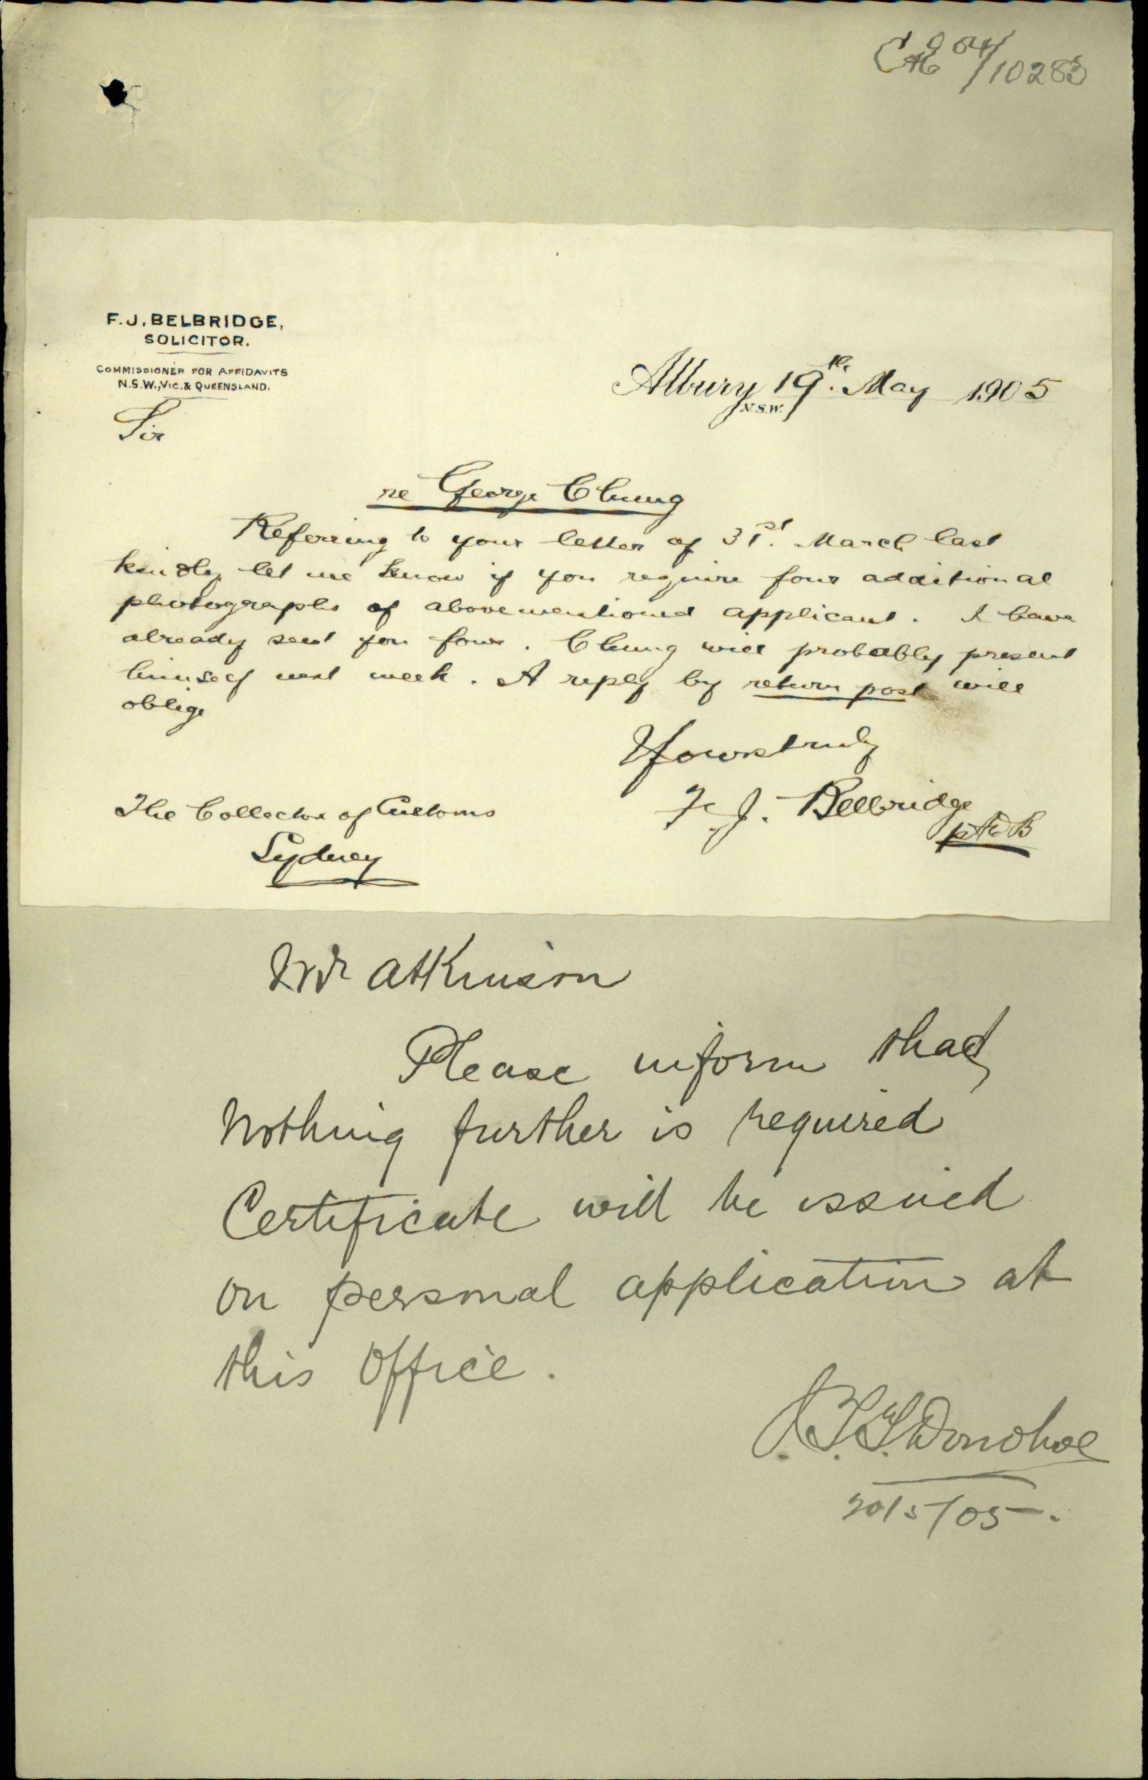 04/10283
F.J. BELBRIDGE,
SOLICITOR.
COMMISSIONER FOR AFFIDAVITS
N.S.W., VIC. & QUEENSLAND.
Albury 19th. May 1905
N.S.W.
Sir
re George Chung
Referring to your letter of 31st. March last
kindly let me know if you require four additional
photographs of abovementioned applicant. I have
already sent you four. Chung will probably present
himself next week. A reply by return post will
oblige
Yours truly
F. J. Belbridge
The Collector of Customs
Sydney
Mr Atkinson
Please inform that
nothing further is required
Certificate will be issued
on personal application at
this Office.
J.T.T. Donohoe
20/5/05.